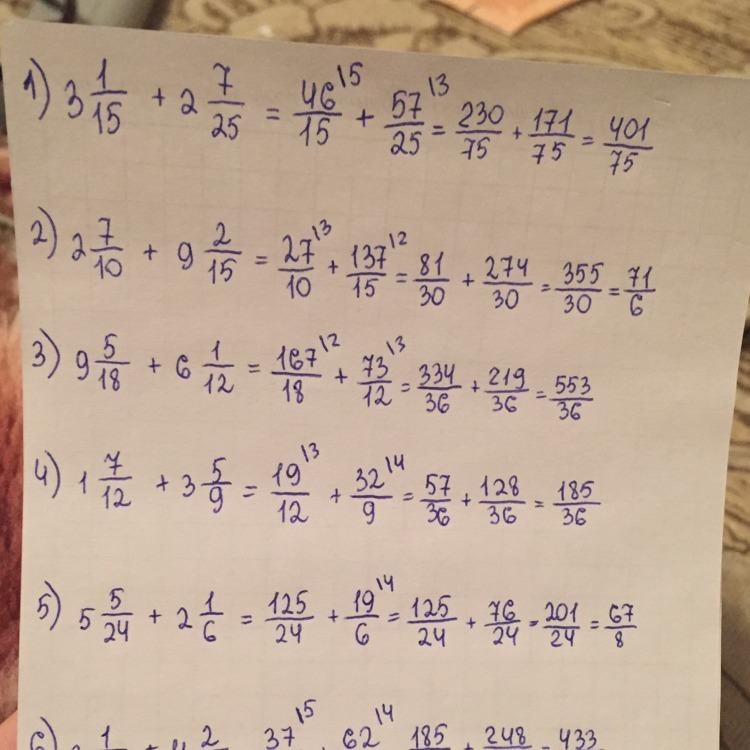 1) 3 1/15 + 2 7/25 = 46/15 \5 + 57/25 \3 = 230/75 + 171/75 = 401/75
2) 2 7/10 + 9 2/15 = 27/10 \3 + 137/15 \2 = 81/30 + 274/30 = 355/30 = 71/6
3) 9 5/18 + 6 1/12 = 167/18 \2 + 73/12 \3 = 334/36 + 219/36 = 553/36
4) 1 7/12 + 3 5/9 = 19/12 \3 + 32/9 \4 = 57/36 + 128/36 = 185/36
5) 5 5/24 + 2 1/6 = 125/24 + 19/6 \4 = 125/24 + 76/24 = 201/24 = 67/8
6) 1 + 2 37 \5 62 \4 185 + 248 = 433